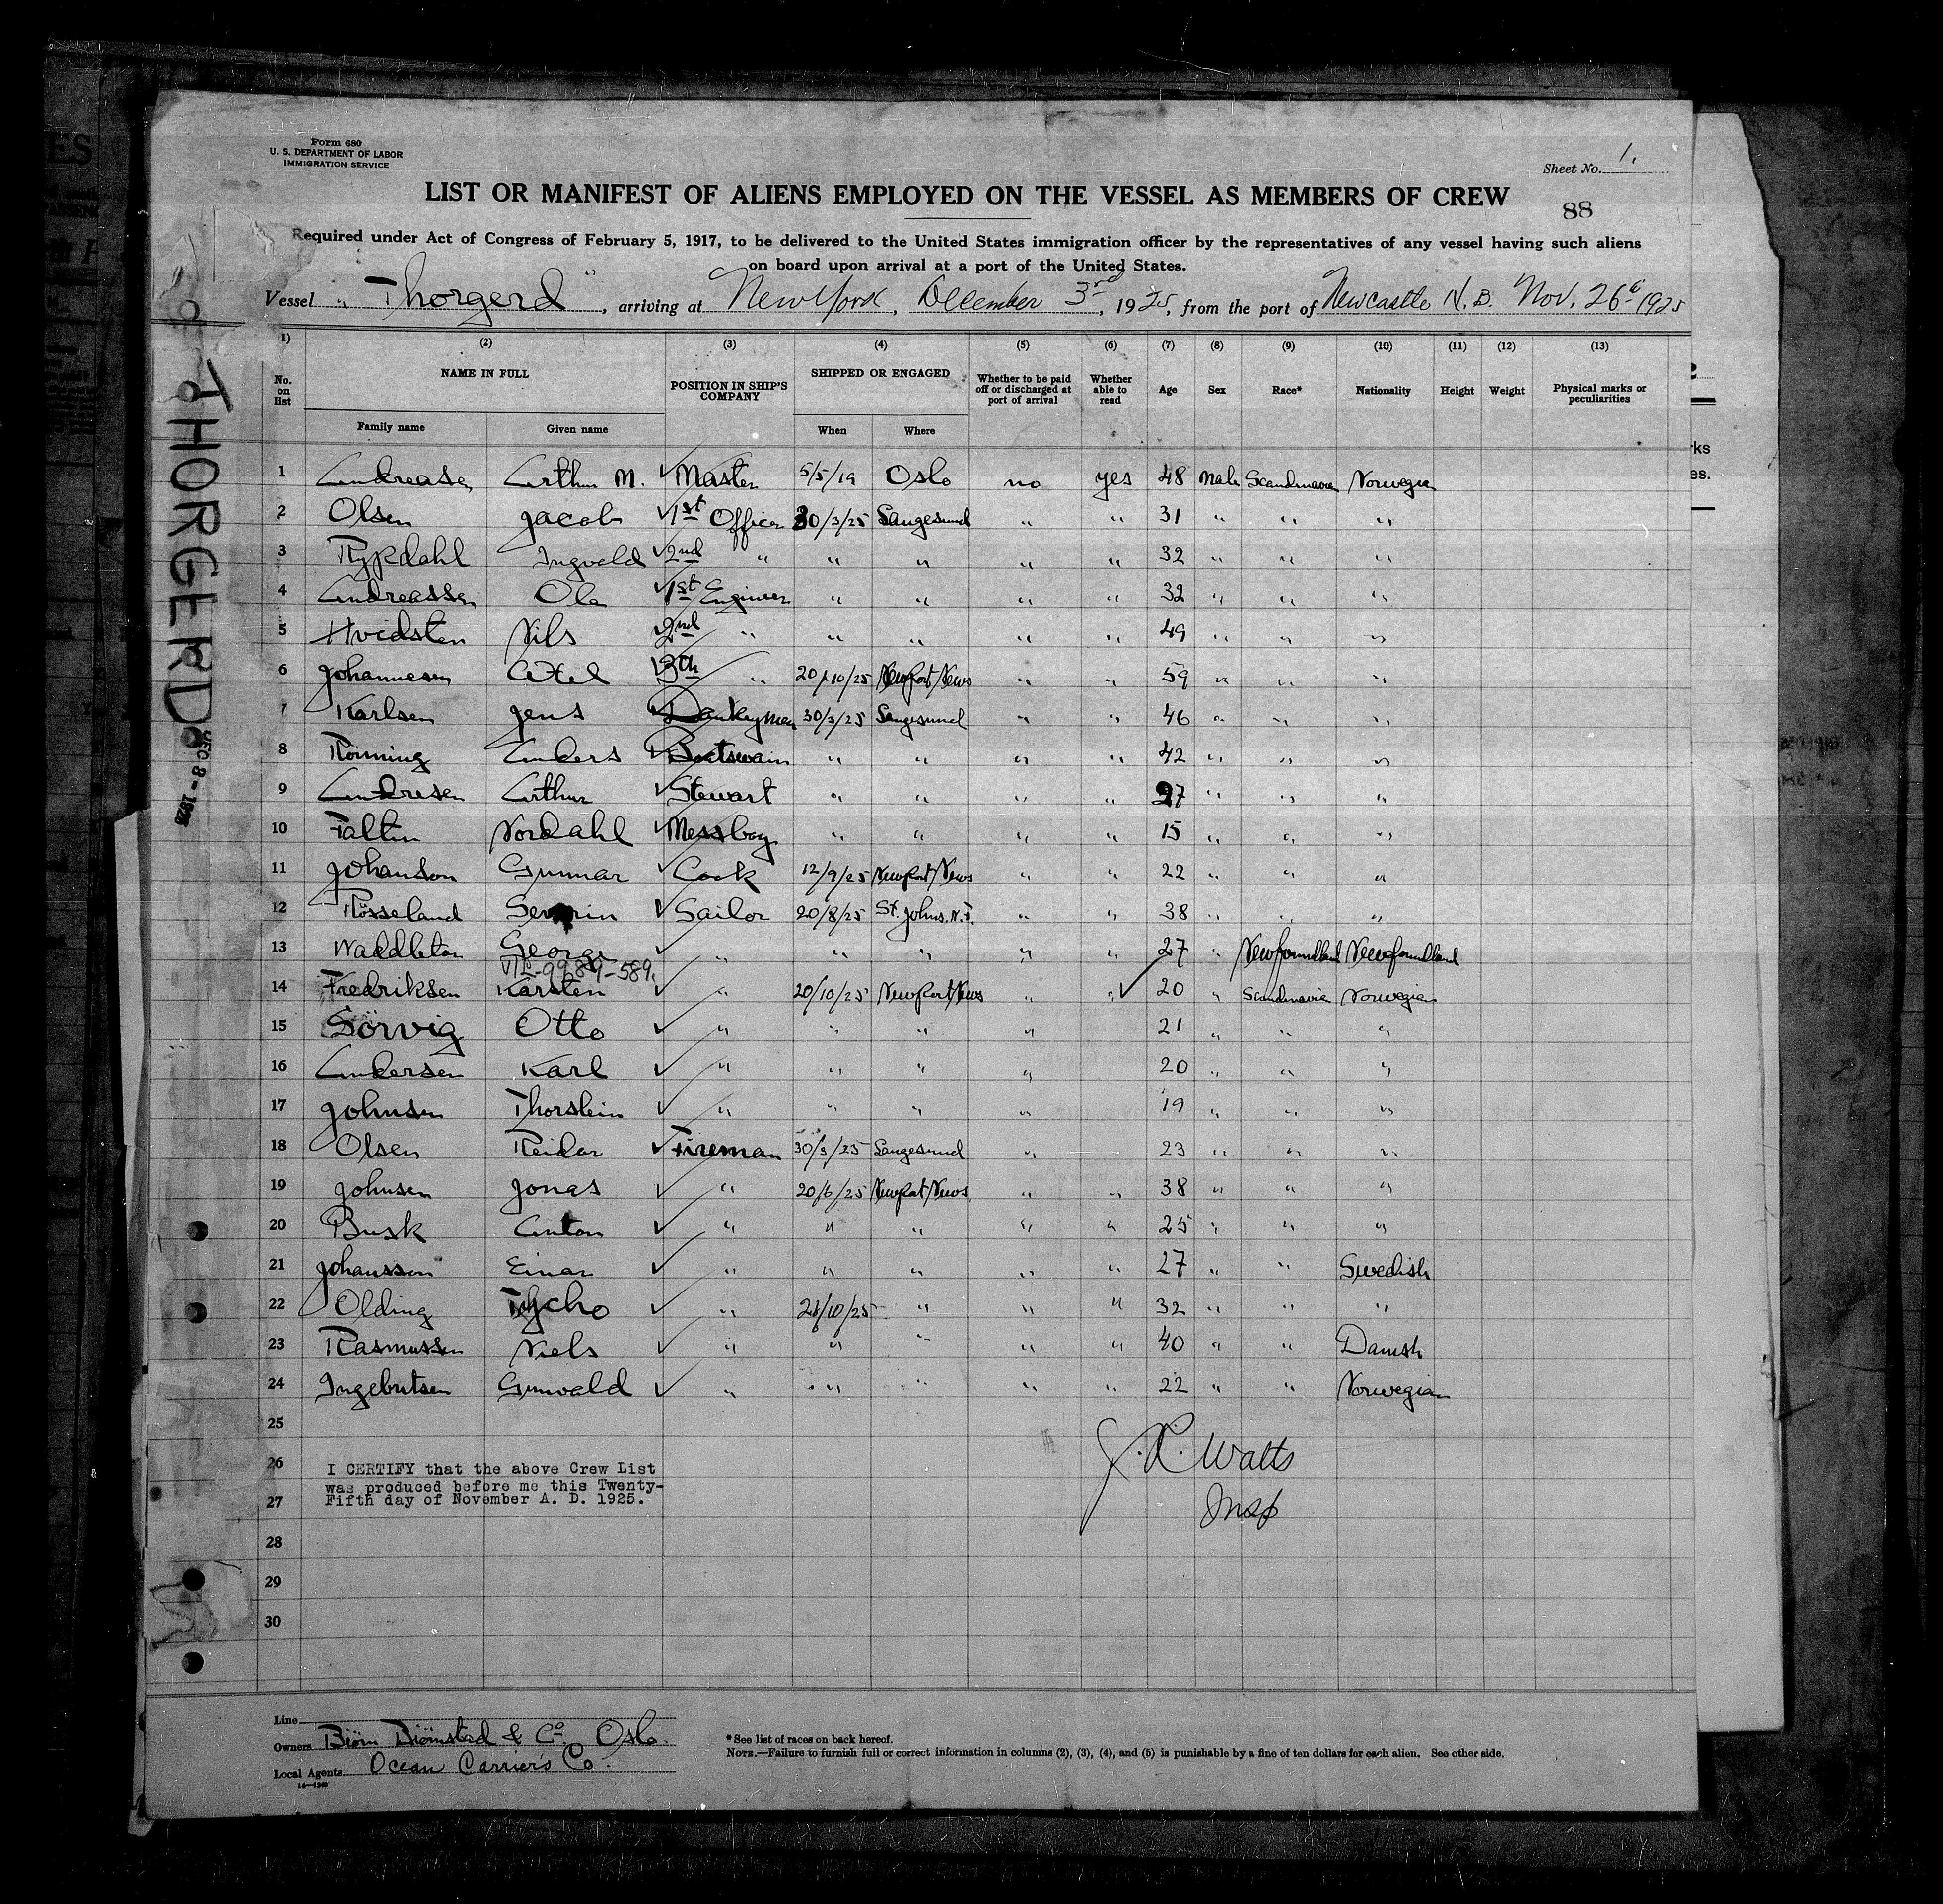 Form 680
U. S. DEPARTMENT OF LABOR
IMMIGRATION SERVICE
Sheet No. 1.
LIST OR MANIFEST OF ALIENS EMPLOYED ON THE VESSEL AS MEMBERS OF CREW
88
Required under Act of Congress of February 5, 1917, to be delivered to the United States immigration officer by the representatives of any vessel having such aliens
on board upon arrival at a port of the United States.
Vessel "Thorgerd", arriving at New York, December 3rd, 1925, from the port of Newcastle N.B. Nov. 26th 1925
THORGERD
DEC 8 - 1925
(1) (2) (3) (4) (5) (6) (7) (8) (9) (10) (11) (12) (13)
No. on list NAME IN FULL POSITION IN SHIP'S COMPANY SHIPPED OR ENGAGED Whether to be paid off or discharged at port of arrival Whether able to read Age Sex Race* Nationality Height Weight Physical marks or peculiarities
Family name Given name When Where
1 Andreasen Arthur M. Master 5/5/19 Oslo no yes 48 Male Scandinavian Norwegian
2 Olsen Jacob 1st Officer 30/3/25 Langesund " " 31 " " "
3 Rypdahl Ingvald 2nd " " " " " 32 " " "
4 Andreassen Ole 1st Engineer " " " " 32 " " "
5 Hvidsten Nils 2nd " " " " " 49 " " "
6 Johannesen Axel 3th " 20/10/25 Newport/News " " 59 " " "
7 Karlsen Jens Donkeyman 30/3/25 Langesund " " 46 " " "
8 Rönning Anders Boatswain " " " " 42 " " "
9 Andresen Arthur Stewart " " " " 27 " " "
10 Faltin Nordahl Messboy " " " " 15 " " "
11 Johanson Gunnar Cook 12/9/25 Newport/News " " 22 " " "
12 Rösseland Severin Sailor 20/8/25 St. Johns. N.F. " " 38 " " "
13 Waddleton George " " " " " 27 " Newfoundland Newfoundland
VII-9989-589.
14 Fredriksen Karsten " 20/10/25 Newport/News " " 20 " Scandinavian Norwegian
15 Sörvig Otto " " " " 21 " " "
16 Andersen Karl " " " " 20 " " "
17 Johnsen Thorstein " " " " 19 " " "
18 Olsen Reidar Fireman 30/3/25 Langesund " 23 " " "
19 Johnsen Jonas " 20/6/25 Newport/News " " 38 " " "
20 Busk Anton " " " " " 25 " " "
21 Johansson Einar " " " " " 27 " " Swedish
22 Olding Tycho " 21/10/25 " " " 32 " " "
23 Rasmussen Niels " " " " " 40 " " Danish
24 Ingebrtsen Gunvald " " " " " 22 " " Norwegian
25
26
27
28
29
30
I CERTIFY that the above Crew List
was produced before me this Twenty-
Fifth day of November A. D. 1925.
J. R. Watts
Insp
Line
Owners Biörn Biörnstad & Co. Oslo.
Local Agents Ocean Carrier's Co.
14—1240
*See list of races on back hereof.
NOTE.—Failure to furnish full or correct information in columns (2), (3), (4), and (5) is punishable by a fine of ten dollars for each alien. See other side.